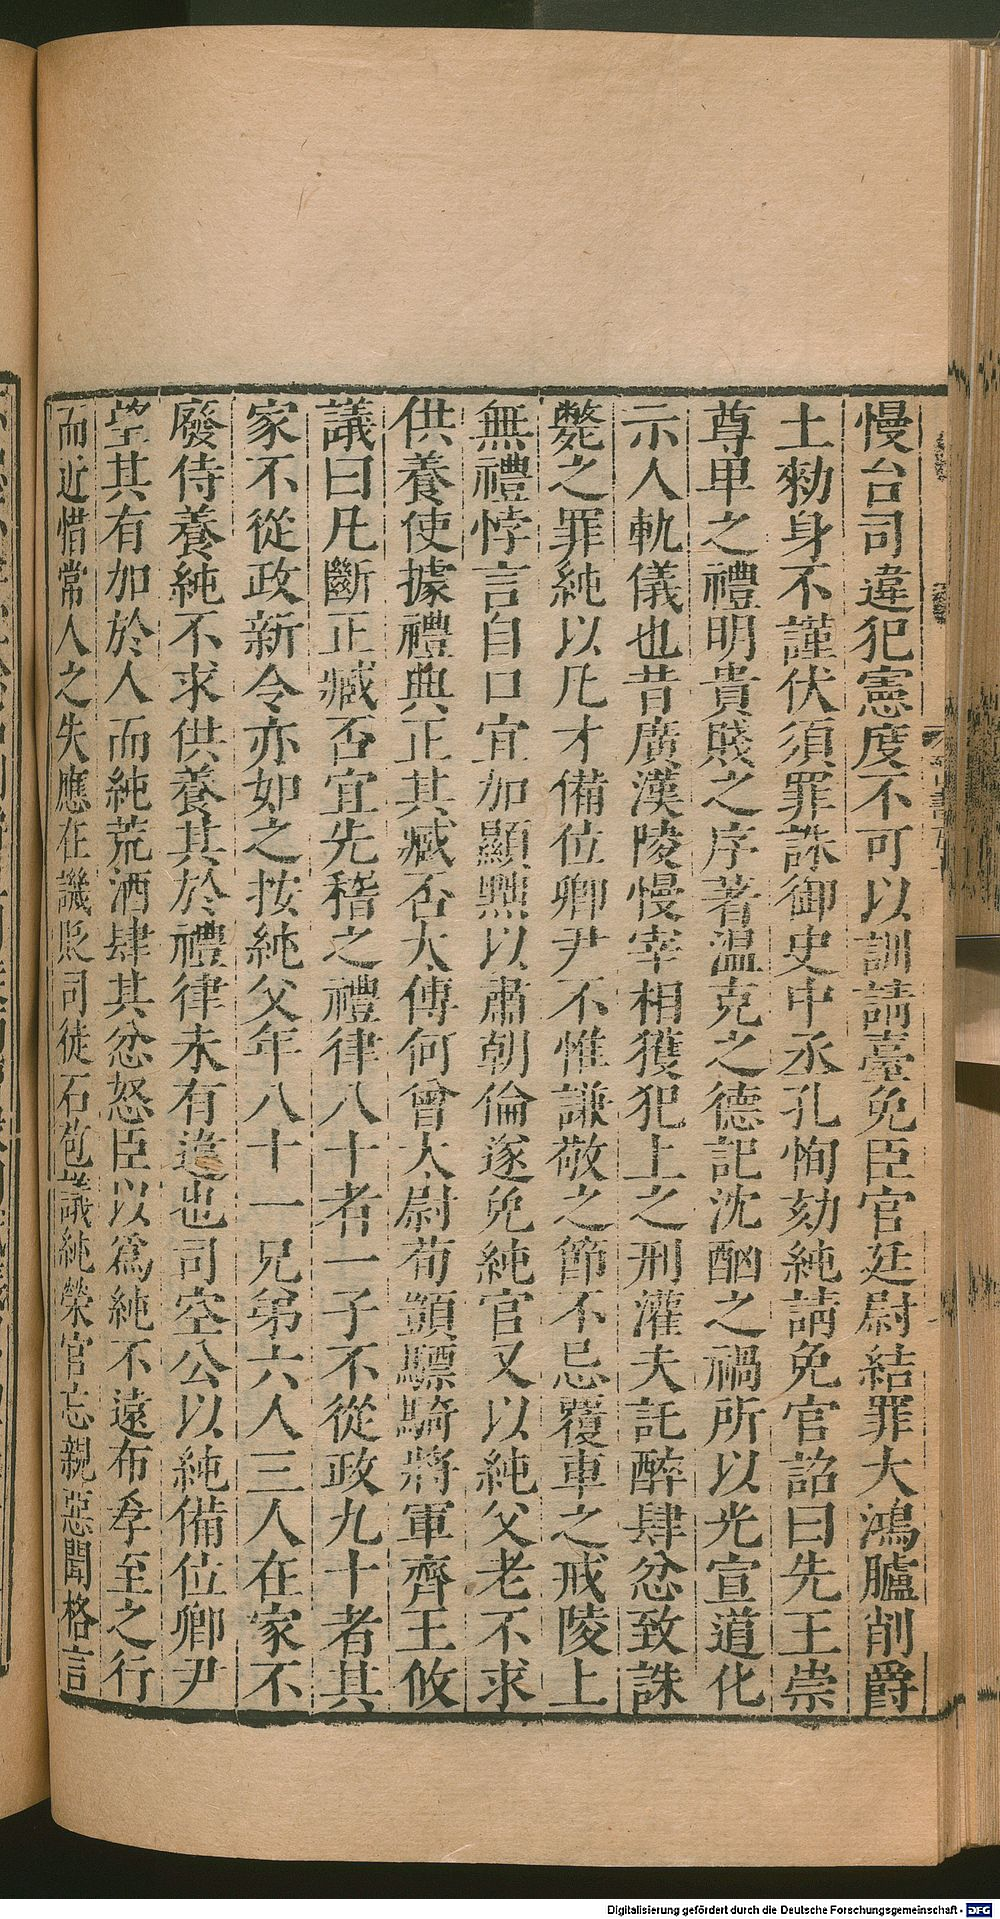 慢台司違犯憲度不可以訓請臺免臣官廷尉結罪大鴻臚削爵
土勑身不謹伏須罪誅御史中丞孔恂劾純請免官詔曰先王崇
尊卑之禮明貴賤之序著温克之德記沈酗之禍所以光宣道化
示人軌儀也昔廣漢陵慢宰相獲犯上之刑灌夫託醉肆忿致誅
斃之罪純以凡才備位卿尹不惟謙敬之節不忌覆車之戒陵上
無禮悖言自口宜加顯黜以肅朝倫遂免純官又以純父老不求
供養使據禮典正其臧否太傅何曾太尉荀顗驃騎將軍齊王攸
議曰凡斷正臧否宜先稽之禮律八十者一子不從政九十者其
家不從政新令亦如之按純父年八十一兄弟六人三人在家不
廢侍養純不求供養其於禮律未有違也司空公以純備位卿尹
望其有加於人而純荒酒肆其忿怒臣以爲純不遠布孝至之行
而近惜常人之失應在譏貶司徒石苞議純榮官忘親惡聞格言
Digitalisierung gefördert durch die Deutsche Forschungsgemeinschaft - DFG